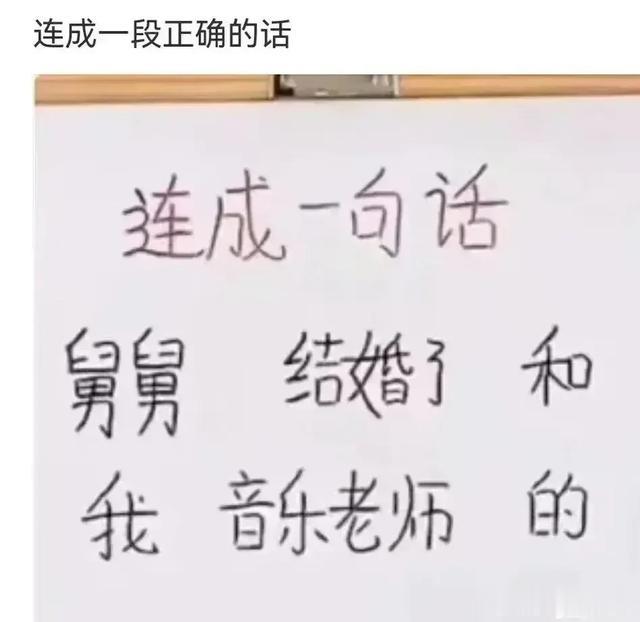 连成一段正确的话
连成一句话
舅舅 结婚了 和
我 音乐老师 的